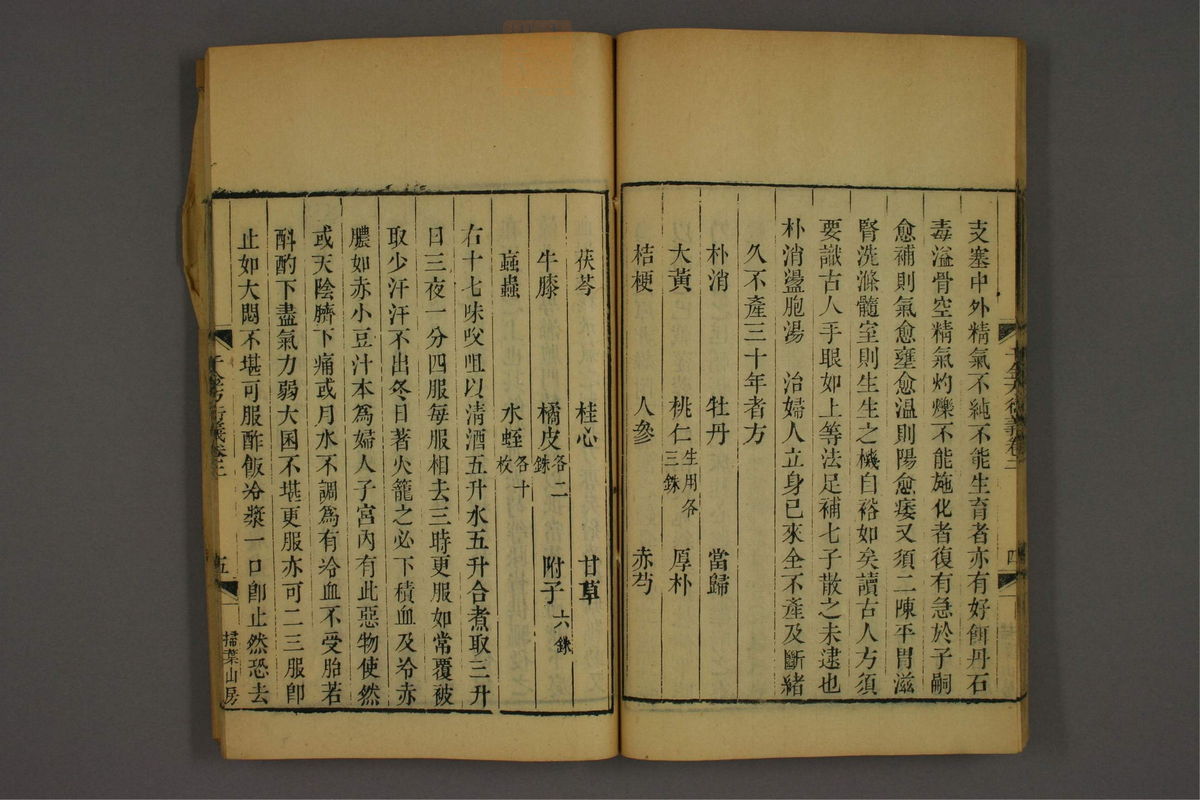 支塞中外精氣不純不能生育者亦有好餌丹石
毒溢骨空精氣灼爍不能施化者復有急於子嗣
愈補則氣愈壅愈温則陽愈痿又須二陳平胃滋
腎洗滌髓室則生生之機自裕如矣讀古人方須
要識古人手眼如上等法足補七子散之未逮也
朴消盪胞湯 治婦人立身已來全不產及斷緒
久不產三十年者方
朴消 牡丹 當歸
大黃 桃仁生用各三銖 厚朴
桔梗 人參 赤芍
茯苓 桂心 甘草
牛膝 橘皮各二銖 附子六銖
蝱蟲 水蛭各十枚
右十七味㕮咀以清酒五升水五升合煮取三升
日三夜一分四服每服相去三時更服如常覆被
取少汗汗不出冬日著火籠之必下積血及冷赤
膿如赤小豆汁本為婦人子宮內有此惡物使然
或天陰臍下痛或月水不調為有冷血不受胎若
斟酌下盡氣力弱大困不堪更服亦可二三服卽
止如大悶不堪可服酢飯冷漿一口卽止然恐去
千金方衍義卷三
五
掃葉山房